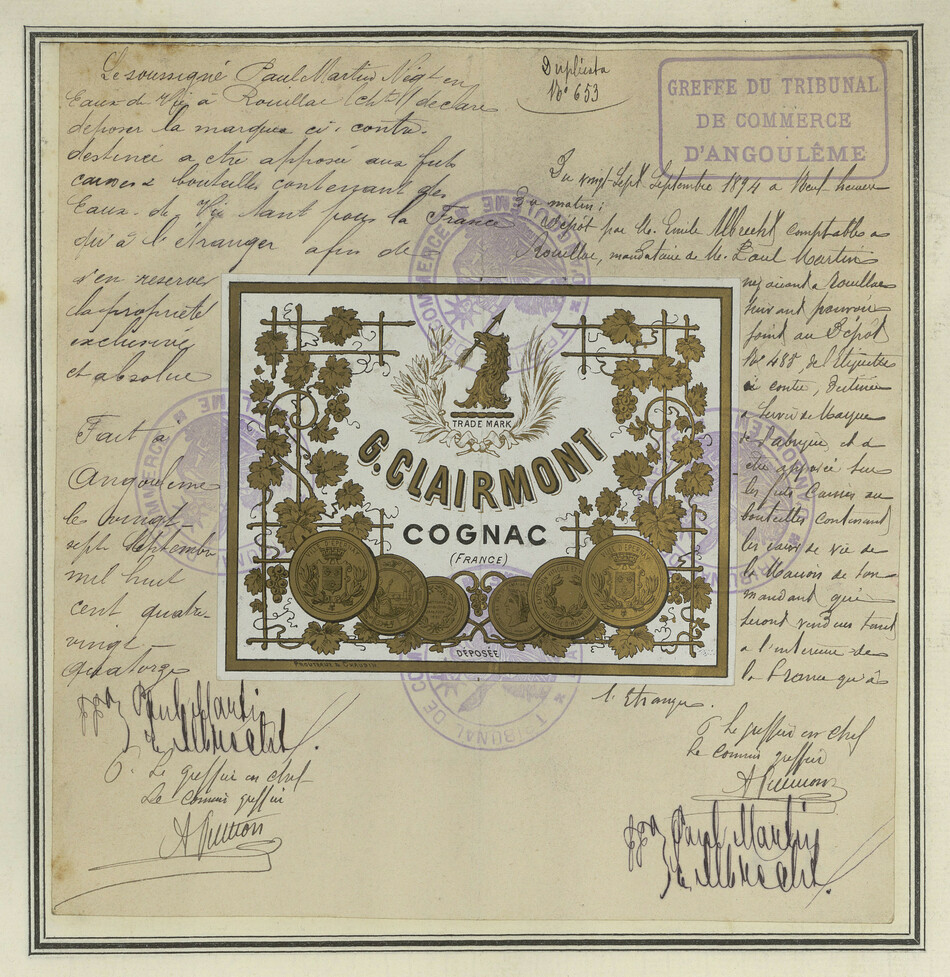 Le soussigné Paul Martin Négt en
Eaux de Vie à Rouillac (Chte) declare
deposer la marque ci-contre
destinée a etre apposée aux futs
caisses & bouteilles contenant des
Eaux-de-Vie tant pour la France
qu'à l'étranger afin de
s'en reserver
la propriété
exclusive
et absolue
Fait à
Angoulême
le vingt-
sept Septembre
mil huit
cent quatre-
vingt-
quatorze
ppon Paul Martin
E. Albrecht
P. Le greffier en chef
Le Commis greffier
Duplicata
No 653
GREFFE DU TRIBUNAL
DE COMMERCE
D'ANGOULÊME
Du vingt Sept Septembre 1894 a Neuf heures
Du matin;
Dépôt par M. Emile Albrecht comptable a
Rouillac, mandataire de M. Paul Martin
négociant a Rouillac
suivant pouvoir
joint au Dépôt
No 488 de l'Etiquette
ci contre, destinée
a servir de Marque
de fabrique et a
être apposée sur
les futs Caisses ou
bouteilles contenant
les eaux de vie de
la Maison de son
mandant qui
seront vendues tant
a l'interieur de
la France qu'à
l'Etranger.
P. Le greffier en chef
Le Commis greffier
ppon Paul Martin
E. Albrecht
TRADE MARK
G. CLAIRMONT
COGNAC
(FRANCE)
DÉPOSÉE